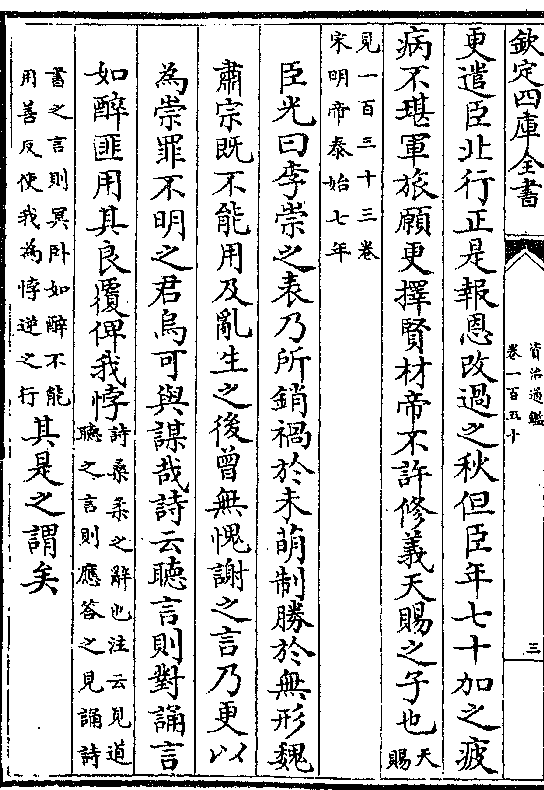 欽定四庫全書
資治通鑑
卷一百五十
三
更遣臣北行正是報恩改過之秋但臣年七十加之疲
病不堪軍旅願更擇賢材帝不許修義天賜之子也天賜
見一百三十三卷
宋明帝泰始七年
臣光曰李崇之表乃所銷禍於未萌制勝於無形魏
肅宗既不能用及亂生之後曾無愧謝之言乃更以
為崇罪不明之君烏可與謀哉詩云聽言則對誦言
如醉匪用其良覆俾我悖詩桑柔之辭也注云見道
聽之言則應答之見誦詩
書之言則冥卧如醉不能
用善反使我為悖逆之行其是之謂矣